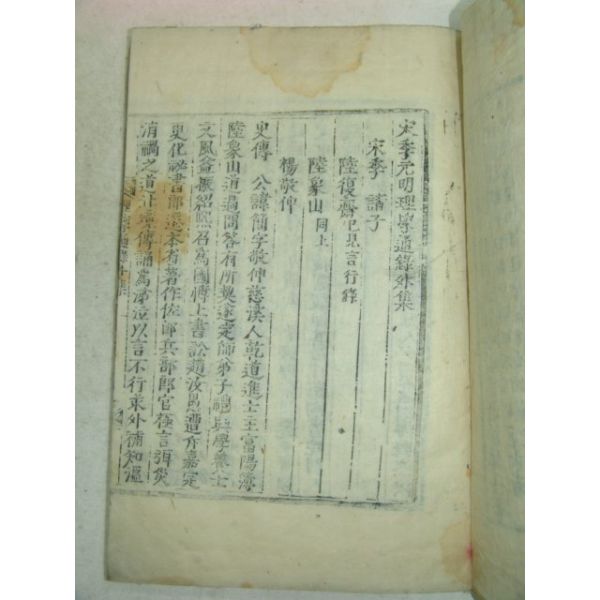 宋季元明理學通錄外集
宋季 諸子
陸復齋已見言行錄
陸象山同上
楊敬仲
史傳 公諱簡字敬仲慈溪人乾道進士主富陽簿
陸象山道過問答有所契遂定師弟子禮興學養士
文風益振紹熙召爲國博上書訟趙汝愚遭斥嘉定
更化祕書郎遷 著作佐郎兵部郎官極言弭災
消禍之道 傳誦爲 以言不行求外補知溫